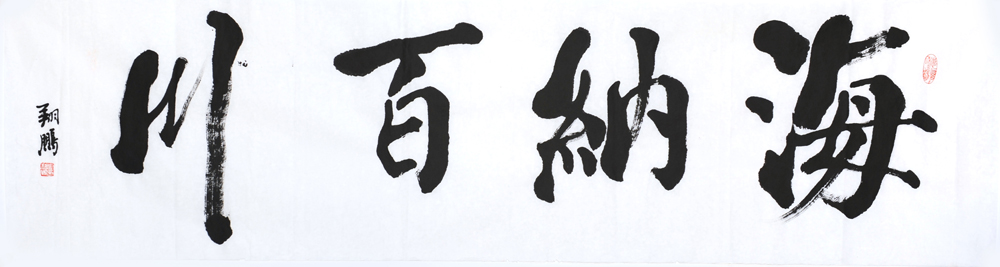 海納百川
翔鵬